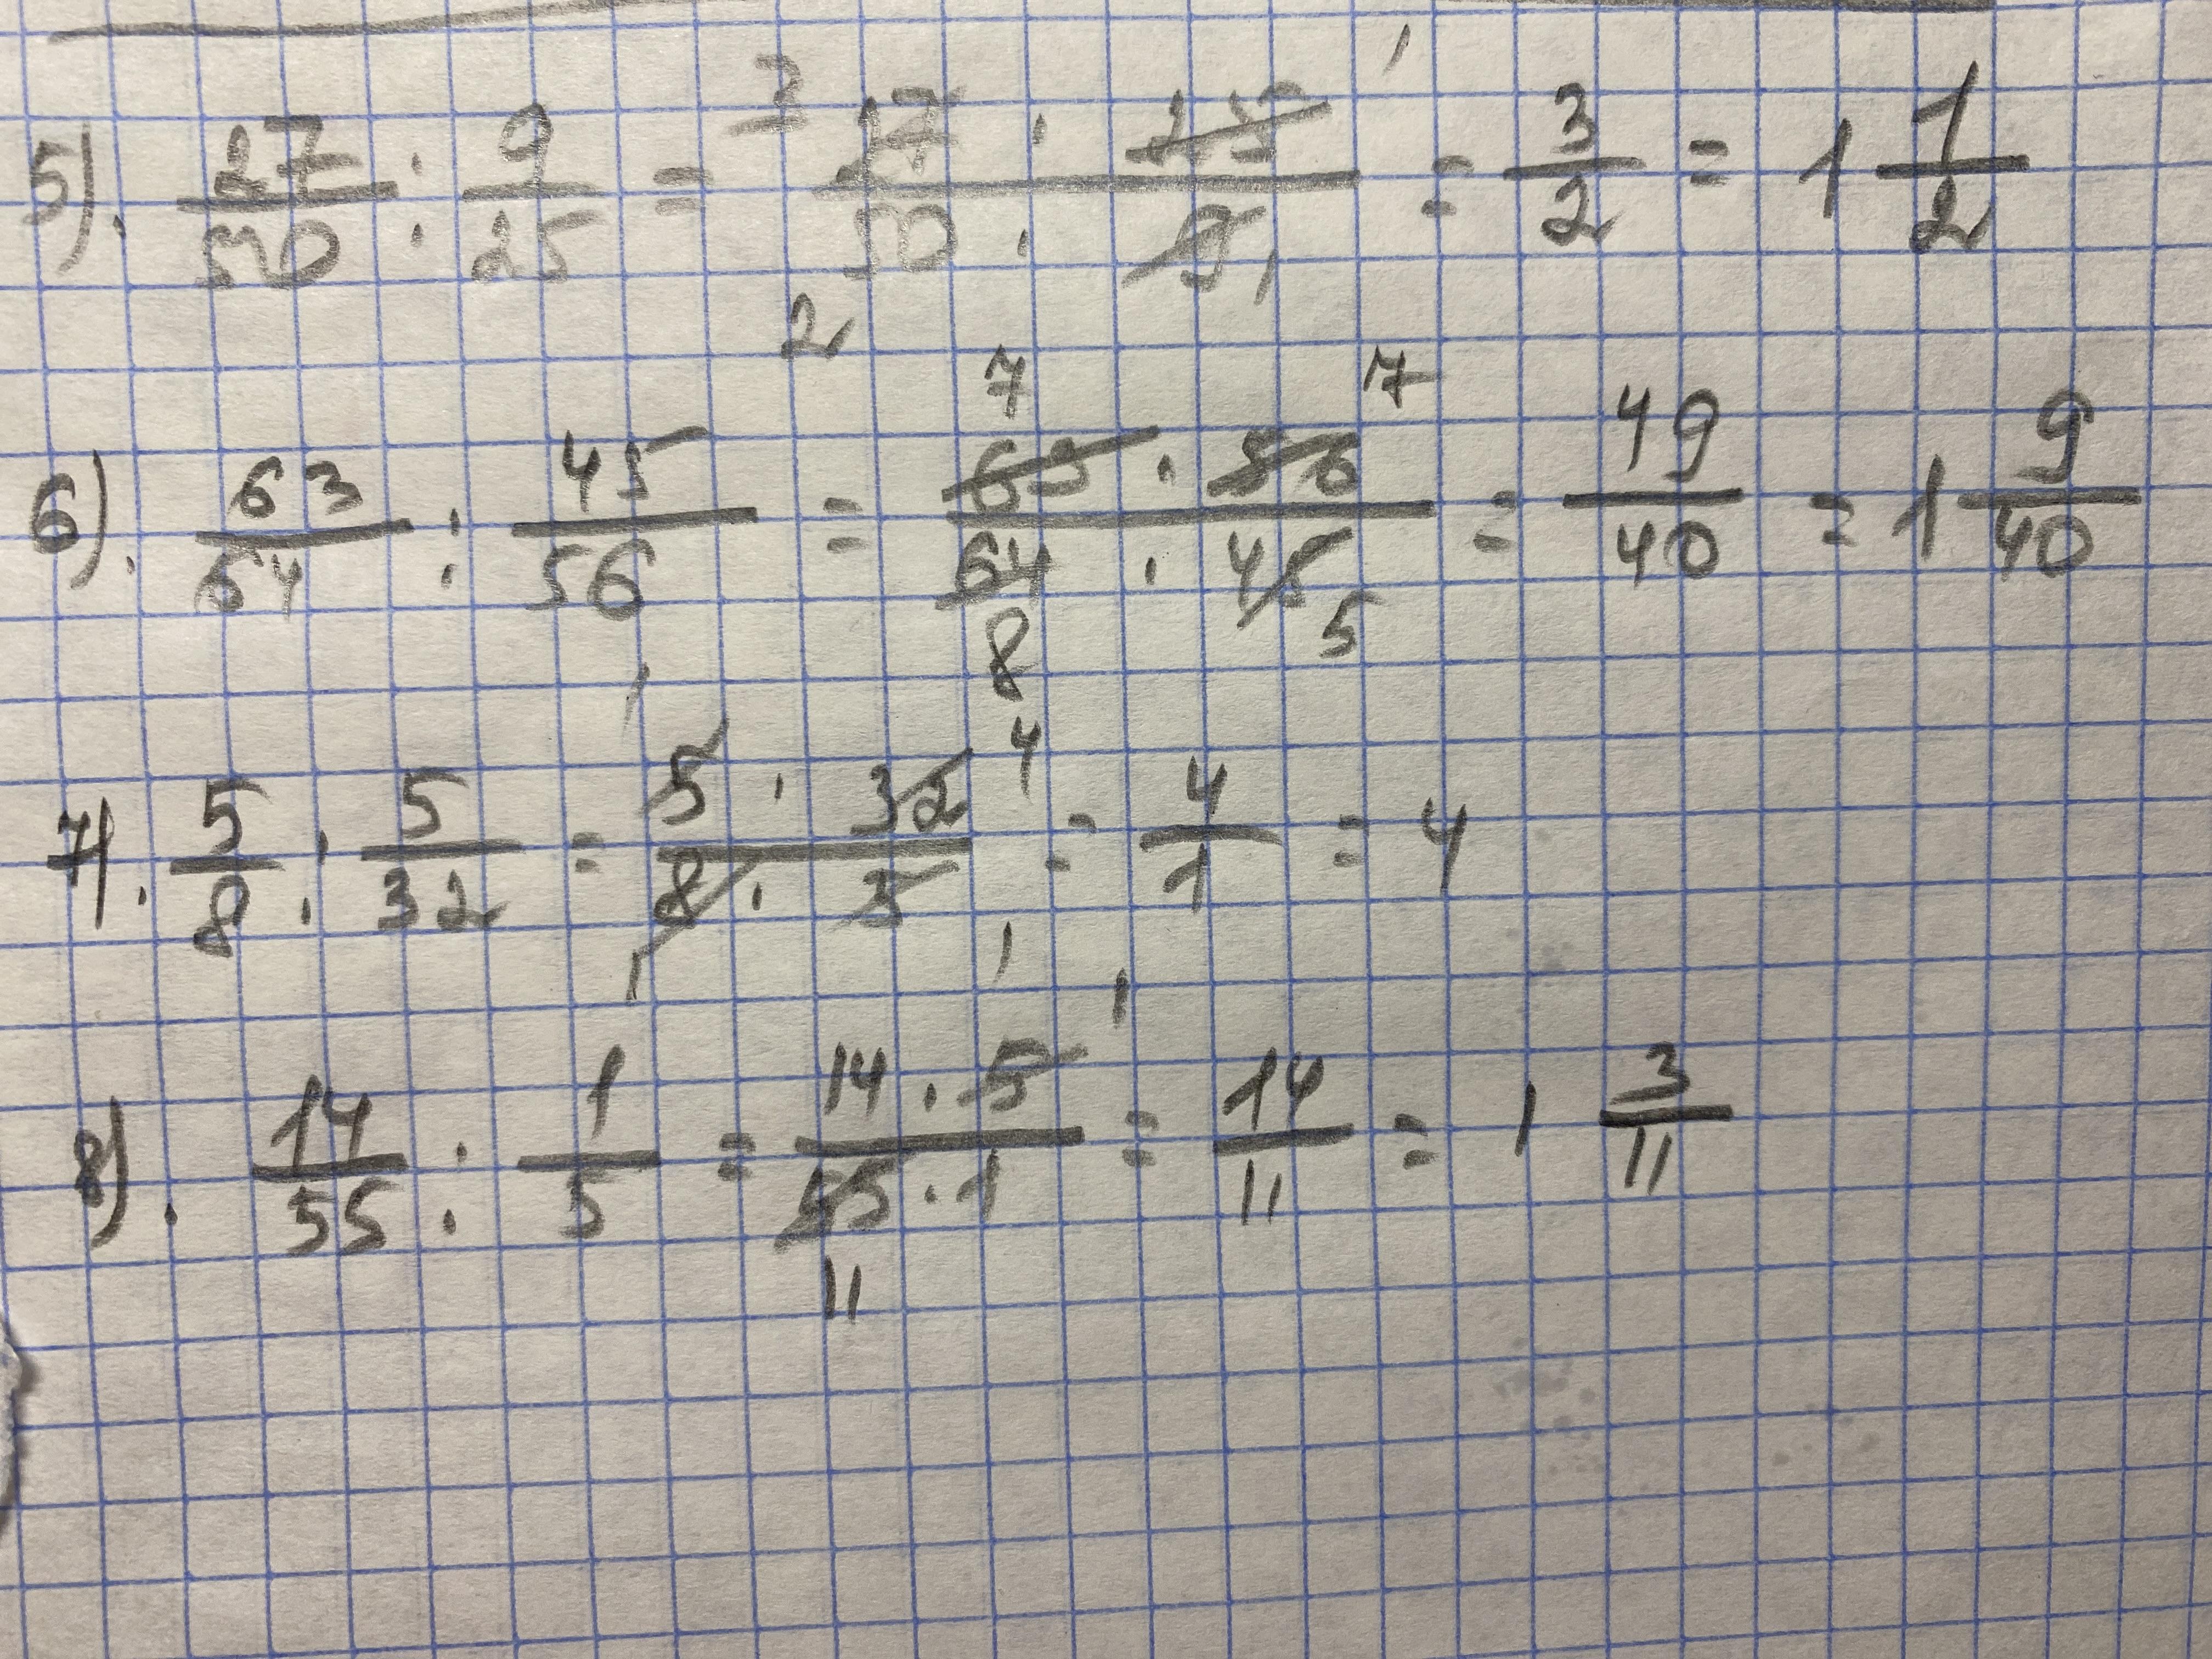 5). 27/50 : 9/25 = 27 · 25 / 50 · 9 = 3/2 = 1 1/2
6). 63/64 : 45/56 = 63 · 56 / 64 · 45 = 49/40 = 1 9/40
7). 5/8 : 5/32 = 5 · 32 / 8 · 5 = 4/1 = 4
8). 14/55 : 1/5 = 14 · 5 / 55 · 1 = 14/11 = 1 3/11